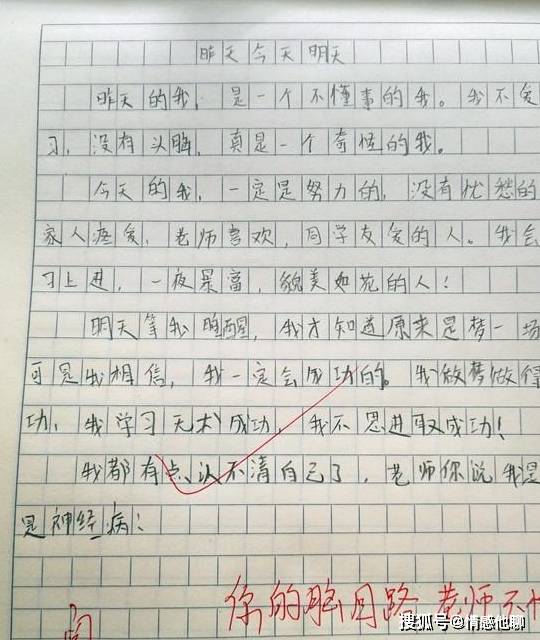 昨天今天明天
昨天的我,是一个不懂事的我。我不爱
习,没有头脑,真是一个奇怪的我。
今天的我,一定是努力的,没有忧愁的
家人疼爱,老师喜欢,同学友爱的人。我会
习上进,一夜暴富,貌美如花的人!
明天等我睡醒,我才知道原来是梦一场
可是我相信,我一定会成功的。我做梦做得
功,我学习无术成功,我不思进取成功!
我都有点认不清自己了,老师你说我是
是神经病!
你的脑回路老师不
阅
搜狐号@情感也聊